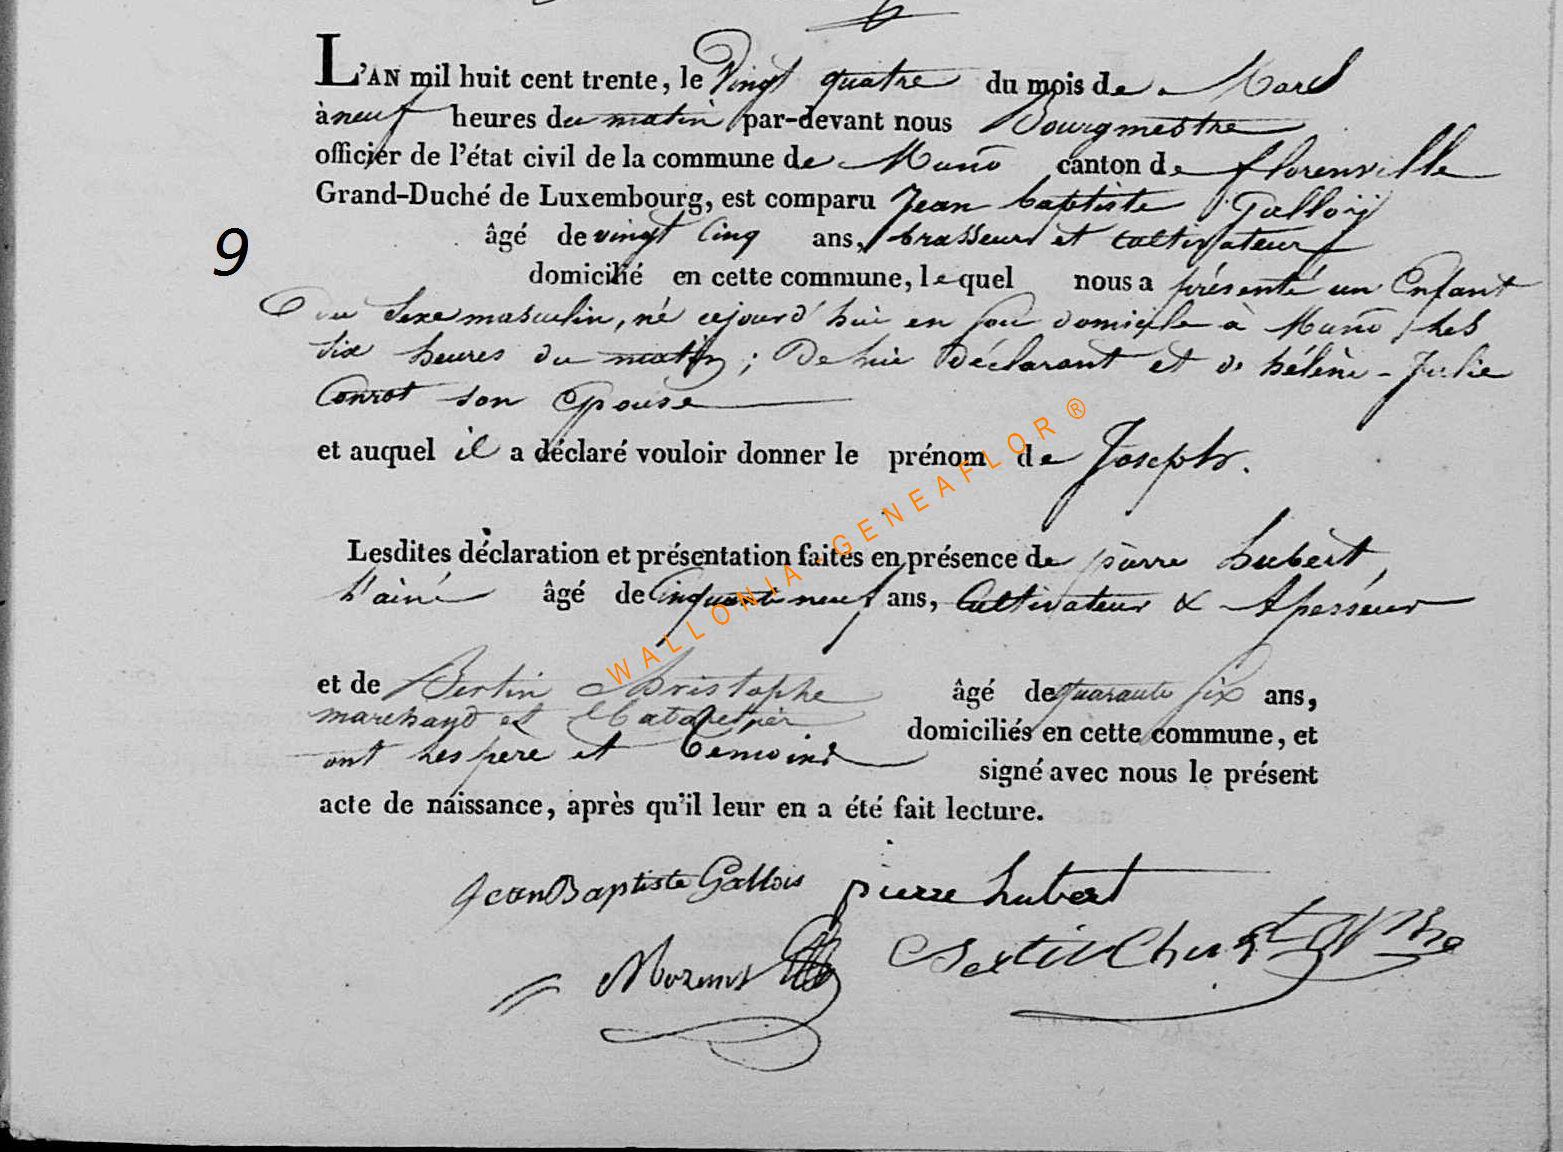 L'AN mil huit cent trente, le Vingt quatre du mois de Mars
à neuf heures du matin par-devant nous Bourgmestre
officier de l'état civil de la commune de Muno canton de florenville
Grand-Duché de Luxembourg, est comparu Jean baptiste Galloij
âgé de vingt Cinq ans, brasseur et cultivateur
9
domicilié en cette commune, lequel nous a présenté un Enfant
du Sexe masculin, né cejourd'hui en son domicile à Muno, les
six heures du matin ; De lui Déclarant et de hélène - Julie
Conrot son Epouse
et auquel il a déclaré vouloir donner le prénom de Joseph.
WALLONIA-GENEAFLOR®
Lesdites déclaration et présentation faites en présence de pierre hubert,
L'ainé âgé de Cinquante neuf ans, Cultivateur & Assesseur
et de Bertin Christophe âgé de quarante six ans,
marchand et Cabaretier domiciliés en cette commune, et
ont les père et témoins signé avec nous le présent
acte de naissance, après qu'il leur en a été fait lecture.
Jean Baptiste Gallois pierre hubert